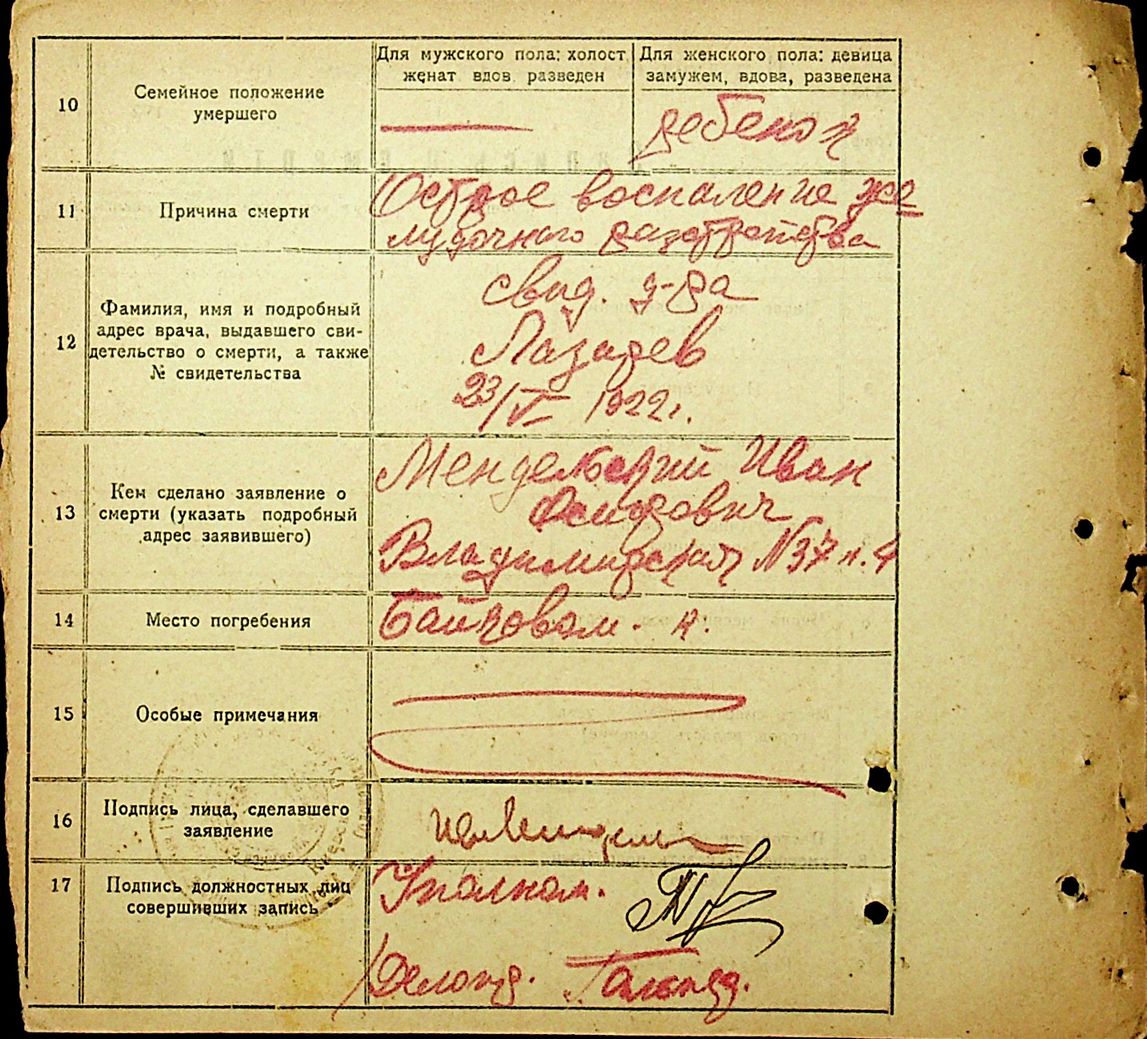 10
Семейное положение
умершего
Для мужского пола: холост
женат вдов разведен
Для женского пола: девица
замужем, вдова, разведена
ребенок
11
Причина смерти
Острое воспаление же
лудочного разстройства
12
Фамилия, имя и подробный
адрес врача, выдавшего сви-
детельство о смерти, а также
№ свидетельства
свид. д-ра
Лазарев
23/V 1922г.
13
Кем сделано заявление о
смерти (указать подробный
адрес заявившего)
Иван
Осипович
Владимирская N37 к. 4
14
Место погребения
Байковом. к.
15
Особые примечания
16
Подпись лица, сделавшего
заявление
17
Подпись должностных лиц
совершивших запись
Уполном.
Делопр.